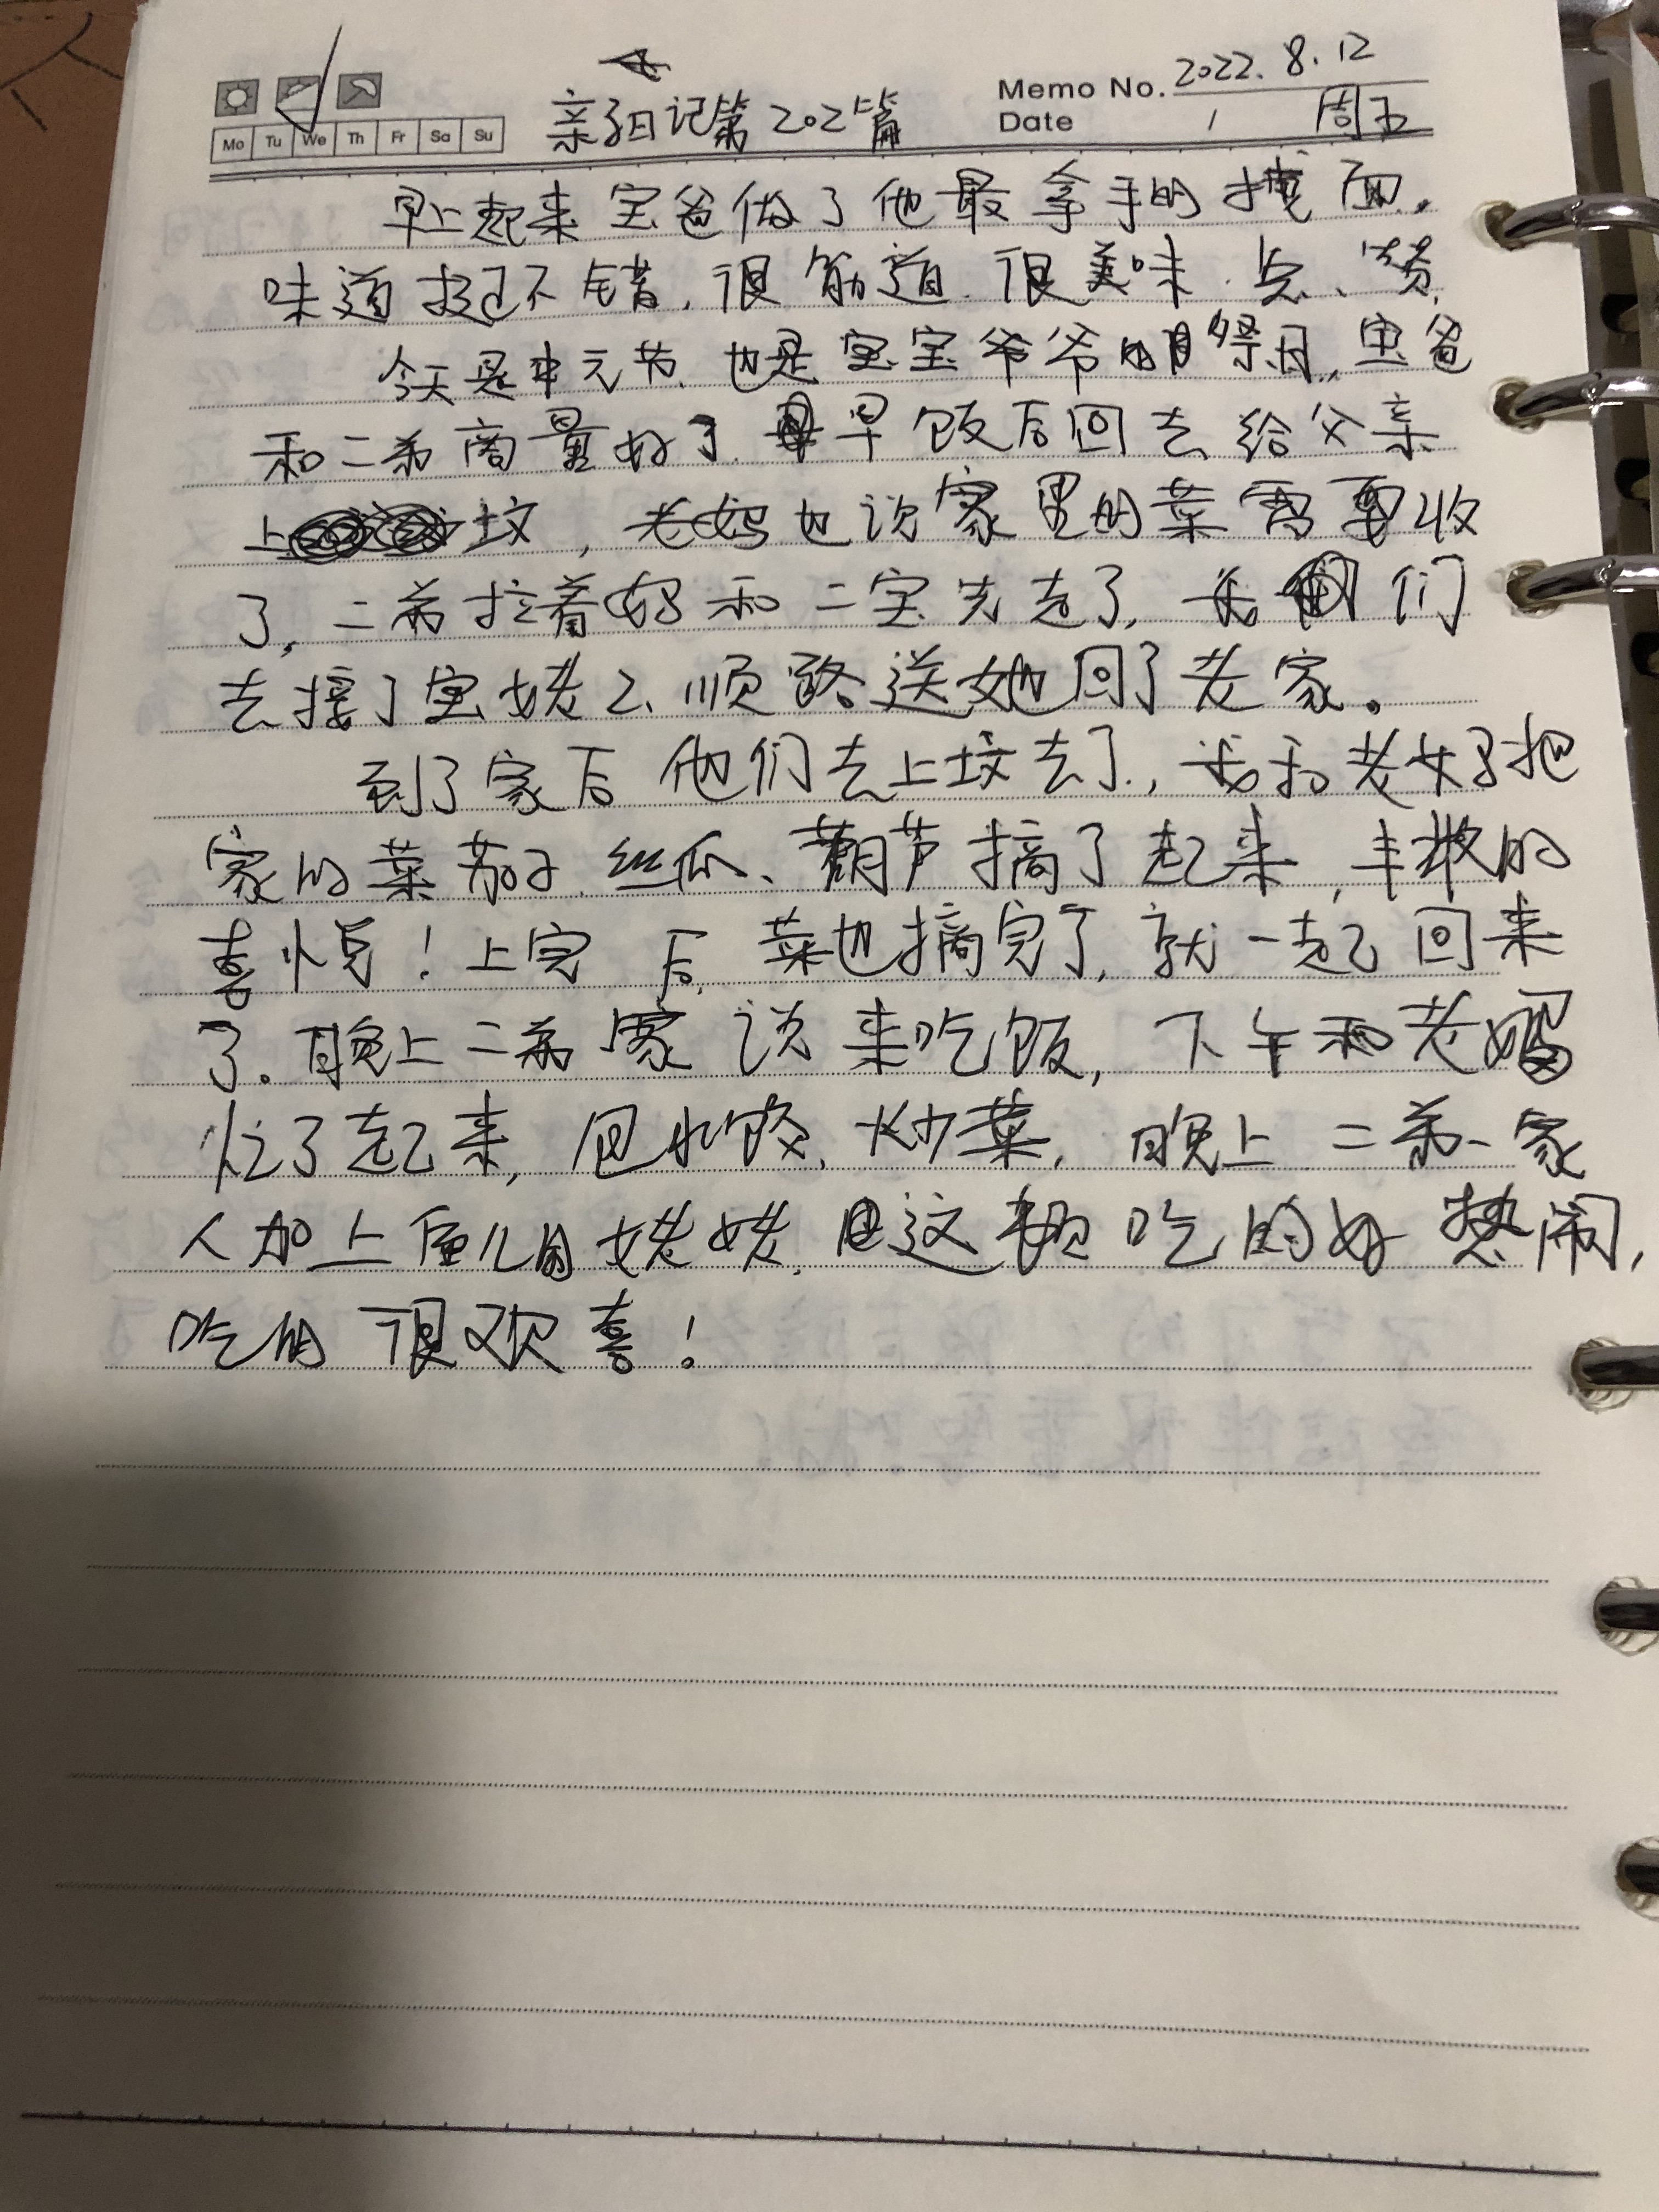 Memo No. 2022. 8. 12
Mo Tu We Th Fr Sa Su
亲子日记第202篇
Date / 周五
早上起来宝爸做了他最拿手的面,
味道超不错,很筋道,很美味.点、赞,
今天是中元节、也是宝宝爷爷的祭日,宝爸
和二弟商量好了.早饭后回去给父亲
上坟,老妈也说家里的菜需要收
了,二弟拉着妈和二宝先走了,我们
去接了宝姥乙、顺路送她回了老家。
到了家后他们去上坟去了,我和老妈把
家的菜茄子.丝瓜、葫芦摘了起来,丰收的
喜悦!上完 后,菜也摘完了,就一起回来
了。晚上二弟家说来吃饭,下午和老妈
忙了起来,包水饺、炒菜,晚上二弟一家
人加上侄儿的姥姥,这顿吃的好热闹,
吃的很欢喜!